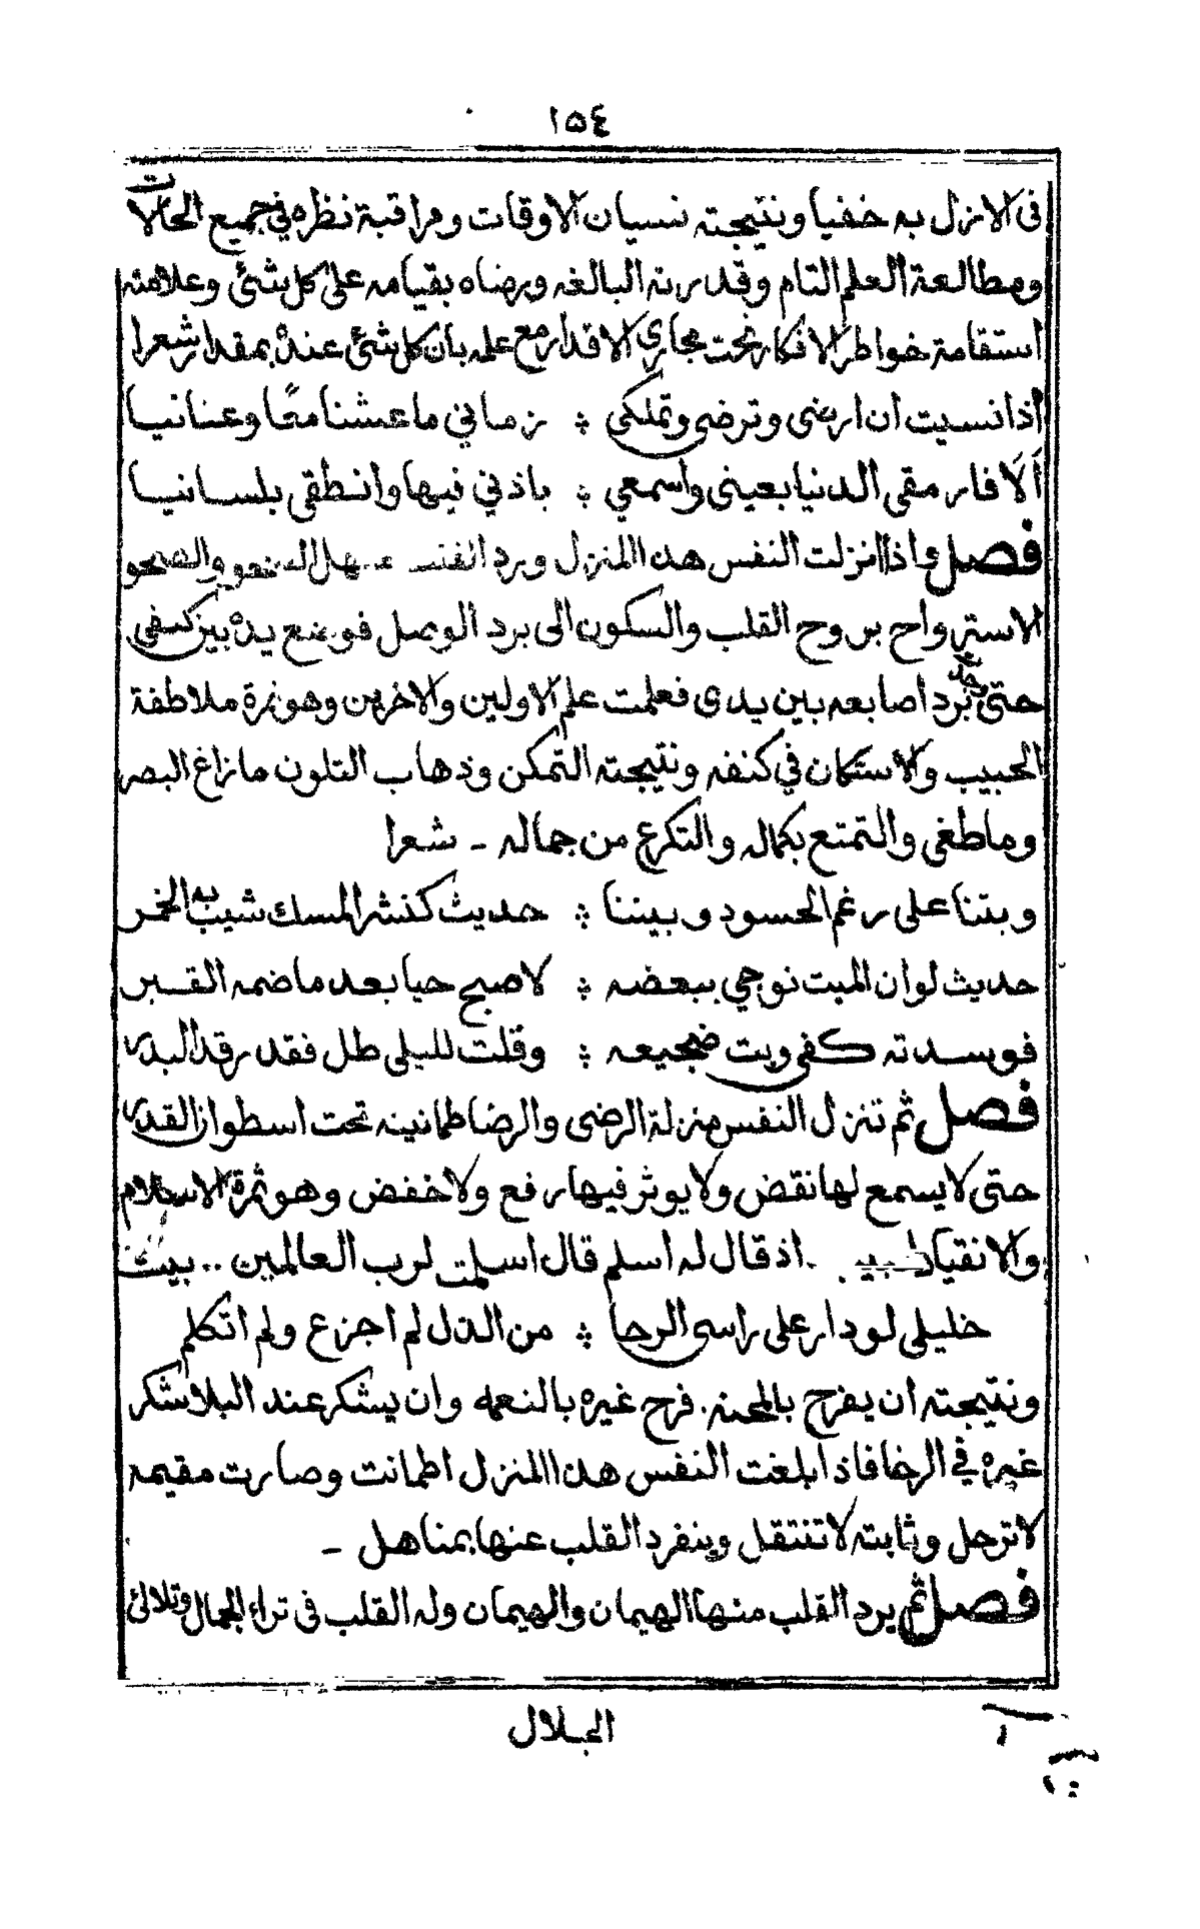 ١٥٤
فى الازل به خفيا ونتيجته نسيان الاوقات ومراقبة نظره في جميع الحالات
ومطالعة العلم التام وقدرته البالغه ورضاه بقيامه على كل شئ وعلامته
استقامة خواطر الافكار تحت مجاري الاقدار مع علمه بان كل شئ عنده بمقدار شعرا
اذا نسيت ان ارضى وترضى وتملكى ؛ زماني ما عشنا معًا وعنانيا
اَلَا فارمقى الدنيا بعينى واسمعي ؛ باذني فيها وانطقى بلسانيا
فصل واذا انزلت النفس هذا المنزل ورد منهل المحو والصحو
الاسترواح بروح القلب والسكون الى برد الوصل فوضع يده بين كتفى
حتى وجدت برد اصابعه بين يدى فعلمت علم الاولين والاخرين وهو ثمرة ملاطفة
الحبيب والاستكان في كنفه ونتيجته التمكن وذهاب التلون مازاغ البصر
وماطغى والتمتع بكماله والتكرع من جماله ـ شعرا
وبتنا على رغم الحسود وبيننا ؛ حديث كنشر المسك شيب به الخمر
حديث لوان الميت نوجي ببعضه ؛ لاصبح حيا بعد ما ضمه القبر
فوسدته كفى وبت ضجيعه ؛ وقلت لليلى طل فقد رقد البدر
فصل ثم تنزل النفس منزلة الرضى والرضا طمانينه تحت اسطوان القدر
حتى لا يسمع لها نقض ولا يوثر فيها رفع ولا خفض وهو ثمرة الاستلام
والانقياد اذ قال له اسلم قال اسلمت لرب العالمين .. بيت
خليلى لو دار على راسى الرحا ؛ من الذل لم اجزع ولم اتكلم
ونتيجته ان يفرح بالمحنه. فرح غيره بالنعمه وان يشكر عند البلا شكر
غيره في الرخا فاذا بلغت النفس هذا المنزل اطمانت وصارت مقيمه
لا ترحل وثابته لا تنتقل وينفرد القلب عنها بمناهل ـ
فصل ثم يرد القلب منها الهيمان والهيمان وله القلب فى تراء الجمال وتلالئ
الجلال